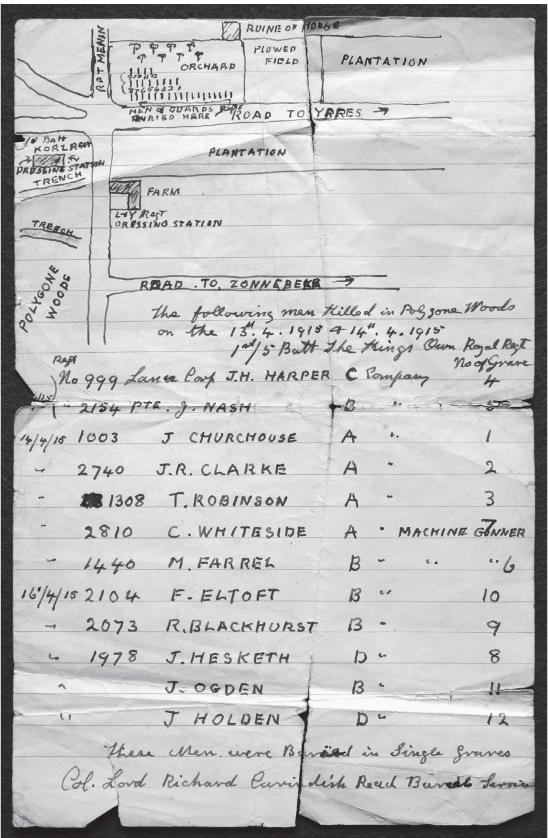 RUINE OF HOUSE
RPT MENIN
ORCHARD
PLOWED
FIELD
PLANTATION
MEN of GUARDS
BURIED HERE
ROAD TO YPRES →
1st Batt
KORL Regt
DRESSING STATION
TRENCH
PLANTATION
FARM
L-Y Regt
DRESSING STATION
TRENCH
POLYGONE
WOODS
ROAD. TO. ZONNEBEKE →
The following men Killed in Polygone Woods
on the 13th. 4. 1915 & 14th. 4. 1915
1st/5 Batt The Kings Own Royal Regt
Regt No of Grave
No 999 Lance Corp J.H. HARPER C Company 4
" 2154 PTE. J. NASH B " 5
14/4/15 1003 J CHURCHOUSE A " 1
" 2740 J.R. CLARKE A " 2
" 1308 T. ROBINSON A " 3
" 2810 C. WHITESIDE A " MACHINE GUNNER 7
" 1440 M. FARREL B " " " 6
16/4/15 2104 F. ELTOFT B " 10
" 2073 R. BLACKHURST B " 9
" 1978 J. HESKETH D " 8
" J. OGDEN B " 11
" J HOLDEN D " 12
These Men were Buried in Single graves
Col. Lord Richard Cavindish Read Burial Service